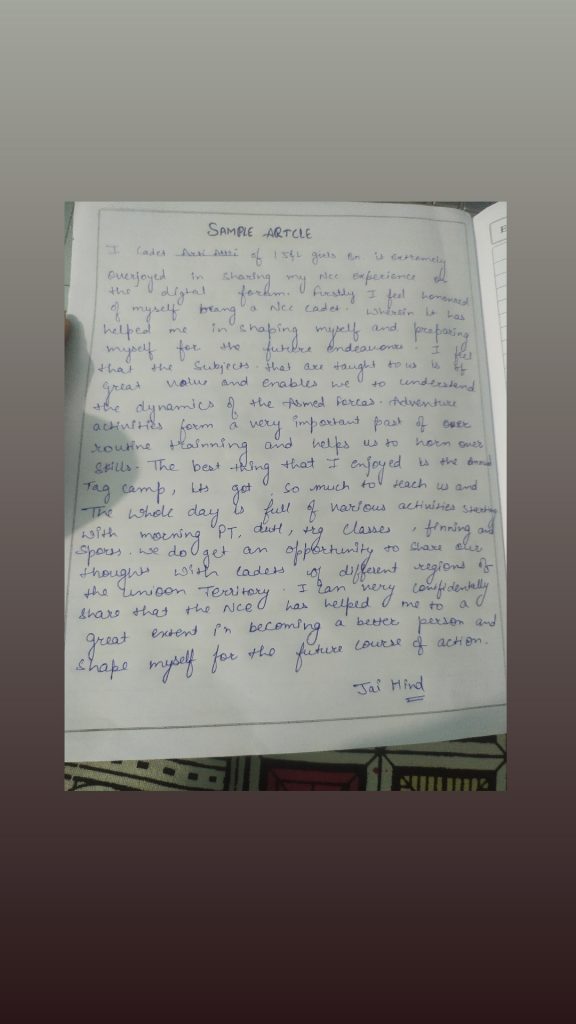 SAMPLE ARTCLE
I Cadet of 1 J&K girls Bn. is extremely
overjoyed in sharing my Ncc experience on
the digtal forum. Firstly I feel honoured
of myself being a Ncc cadet. Wherein it has
helped me in shaping myself and preparing
myself for the future endeavours. I feel
that the Subjects that are taught to us is of
great value and enables we to understand
the dynamics of the Armed Forces. Adventure
activities form a very important part of over
routine trainning and helps us to horn over
skills. The best thing that I enjoyed is the
Tag camp, its got so much to teach us and
The whole day is full of various activities starting
with morning PT, trg classes, finning and
Sporss. we do get an opportunity to share our
thoughts with cadets of different regions of
the unioon Territory. I can very confidentally
share that the NCC has helped me to a
great extent in becoming a better person and
shape myself for the future course of action.
Jai Hind